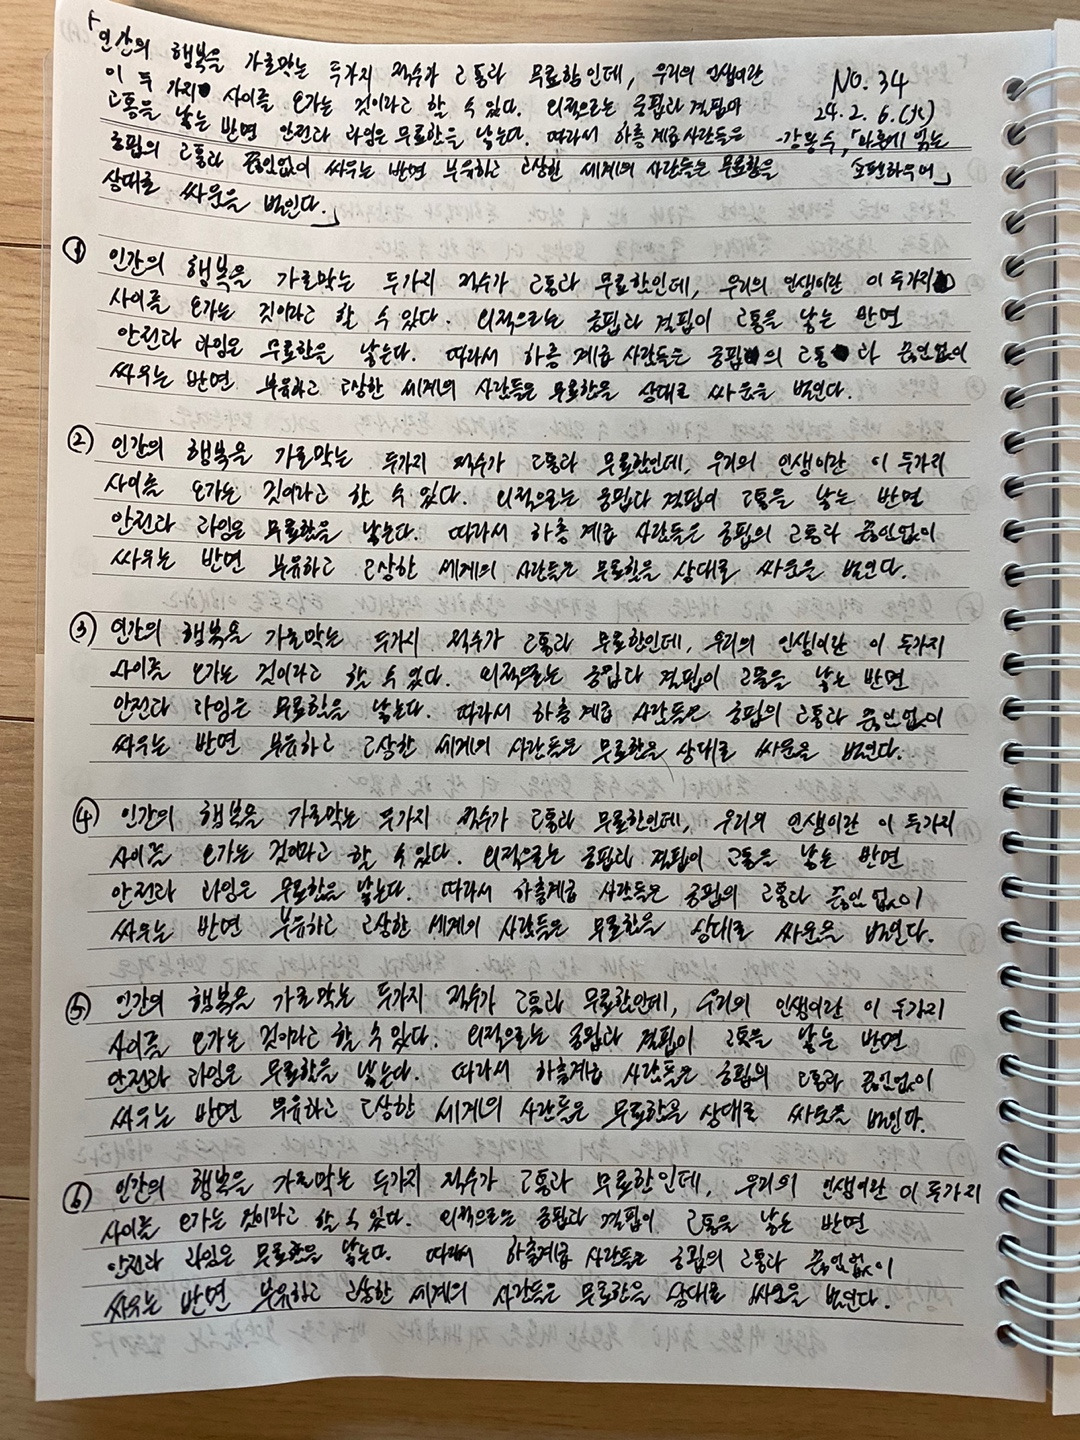 「인간의 행복을 가로막는 두가지 적수가 고통과 무료함인데, 우리의 인생이란
이 두 가지 사이를 오가는 것이라고 할 수 있다. 외적으로는 궁핍과 결핍이
고통을 낳는 반면 안전과 과잉은 무료함을 낳는다. 따라서 하층 계급 사람들은
궁핍의 고통과 끊임없이 싸우는 반면 부유하고 고상한 세계의 사람들은 무료함을
상대로 싸움을 벌인다.」
NO. 34
24. 2. 6. (火)
- 강용수, 「마흔에 읽는
쇼펜하우어」
① 인간의 행복을 가로막는 두가지 적수가 고통과 무료함인데, 우리의 인생이란 이 두가지
사이를 오가는 것이라고 할 수 있다. 외적으로는 궁핍과 결핍이 고통을 낳는 반면
안전과 과잉은 무료함을 낳는다. 따라서 하층 계급 사람들은 궁핍의 고통과 끊임없이
싸우는 반면 부유하고 고상한 세계의 사람들은 무료함을 상대로 싸움을 벌인다.
② 인간의 행복을 가로막는 두가지 적수가 고통과 무료함인데, 우리의 인생이란 이 두가지
사이를 오가는 것이라고 할 수 있다. 외적으로는 궁핍과 결핍이 고통을 낳는 반면
안전과 과잉은 무료함을 낳는다. 따라서 하층 계급 사람들은 궁핍의 고통과 끊임없이
싸우는 반면 부유하고 고상한 세계의 사람들은 무료함을 상대로 싸움을 벌인다.
③ 인간의 행복을 가로막는 두가지 적수가 고통과 무료함인데, 우리의 인생이란 이 두가지
사이를 오가는 것이라고 할 수 있다. 외적으로는 궁핍과 결핍이 고통을 낳는 반면
안전과 과잉은 무료함을 낳는다. 따라서 하층 계급 사람들은 궁핍의 고통과 끊임없이
싸우는 반면 부유하고 고상한 세계의 사람들은 무료함을 상대로 싸움을 벌인다.
④ 인간의 행복을 가로막는 두가지 적수가 고통과 무료함인데, 우리의 인생이란 이 두가지
사이를 오가는 것이라고 할 수 있다. 외적으로는 궁핍과 결핍이 고통을 낳는 반면
안전과 과잉은 무료함을 낳는다. 따라서 하층계급 사람들은 궁핍의 고통과 끊임없이
싸우는 반면 부유하고 고상한 세계의 사람들은 무료함을 상대로 싸움을 벌인다.
⑤ 인간의 행복을 가로막는 두가지 적수가 고통과 무료함인데, 우리의 인생이란 이 두가지
사이를 오가는 것이라고 할 수 있다. 외적으로는 궁핍과 결핍이 고통을 낳는 반면
안전과 과잉은 무료함을 낳는다. 따라서 하층계급 사람들은 궁핍의 고통과 끊임없이
싸우는 반면 부유하고 고상한 세계의 사람들은 무료함을 상대로 싸움을 벌인다.
⑥ 인간의 행복을 가로막는 두가지 적수가 고통과 무료함인데, 우리의 인생이란 이 두가지
사이를 오가는 것이라고 할 수 있다. 외적으로는 궁핍과 결핍이 고통을 낳는 반면
안전과 과잉은 무료함을 낳는다. 따라서 하층계급 사람들은 궁핍의 고통과 끊임없이
싸우는 반면 부유하고 고상한 세계의 사람들은 무료함을 상대로 싸움을 벌인다.